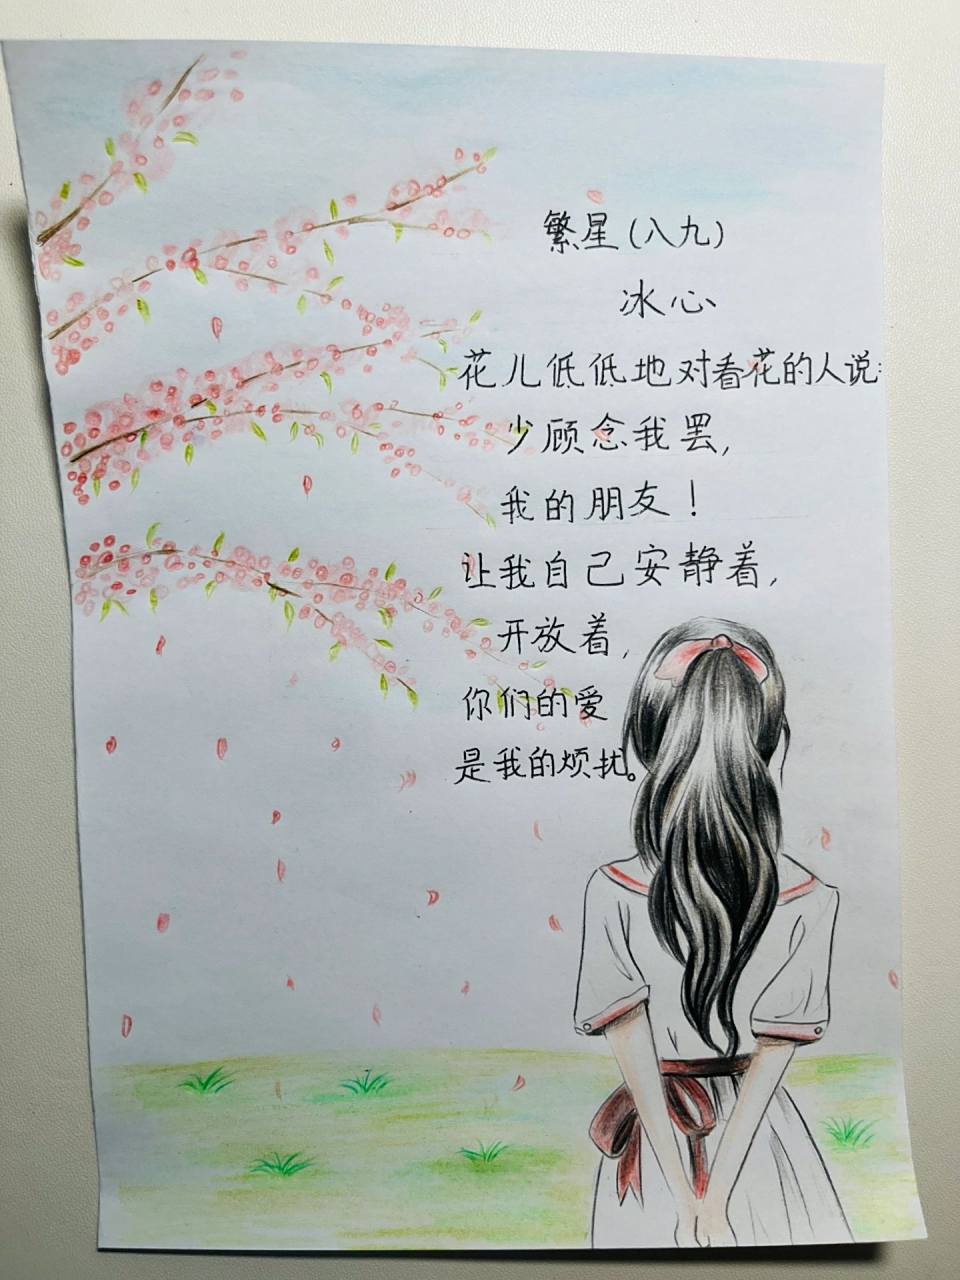 繁星(八九)
冰心
花儿低低地对看花的人说:
少顾念我罢,
我的朋友!
让我自己安静着,
开放着,
你们的爱
是我的烦扰。